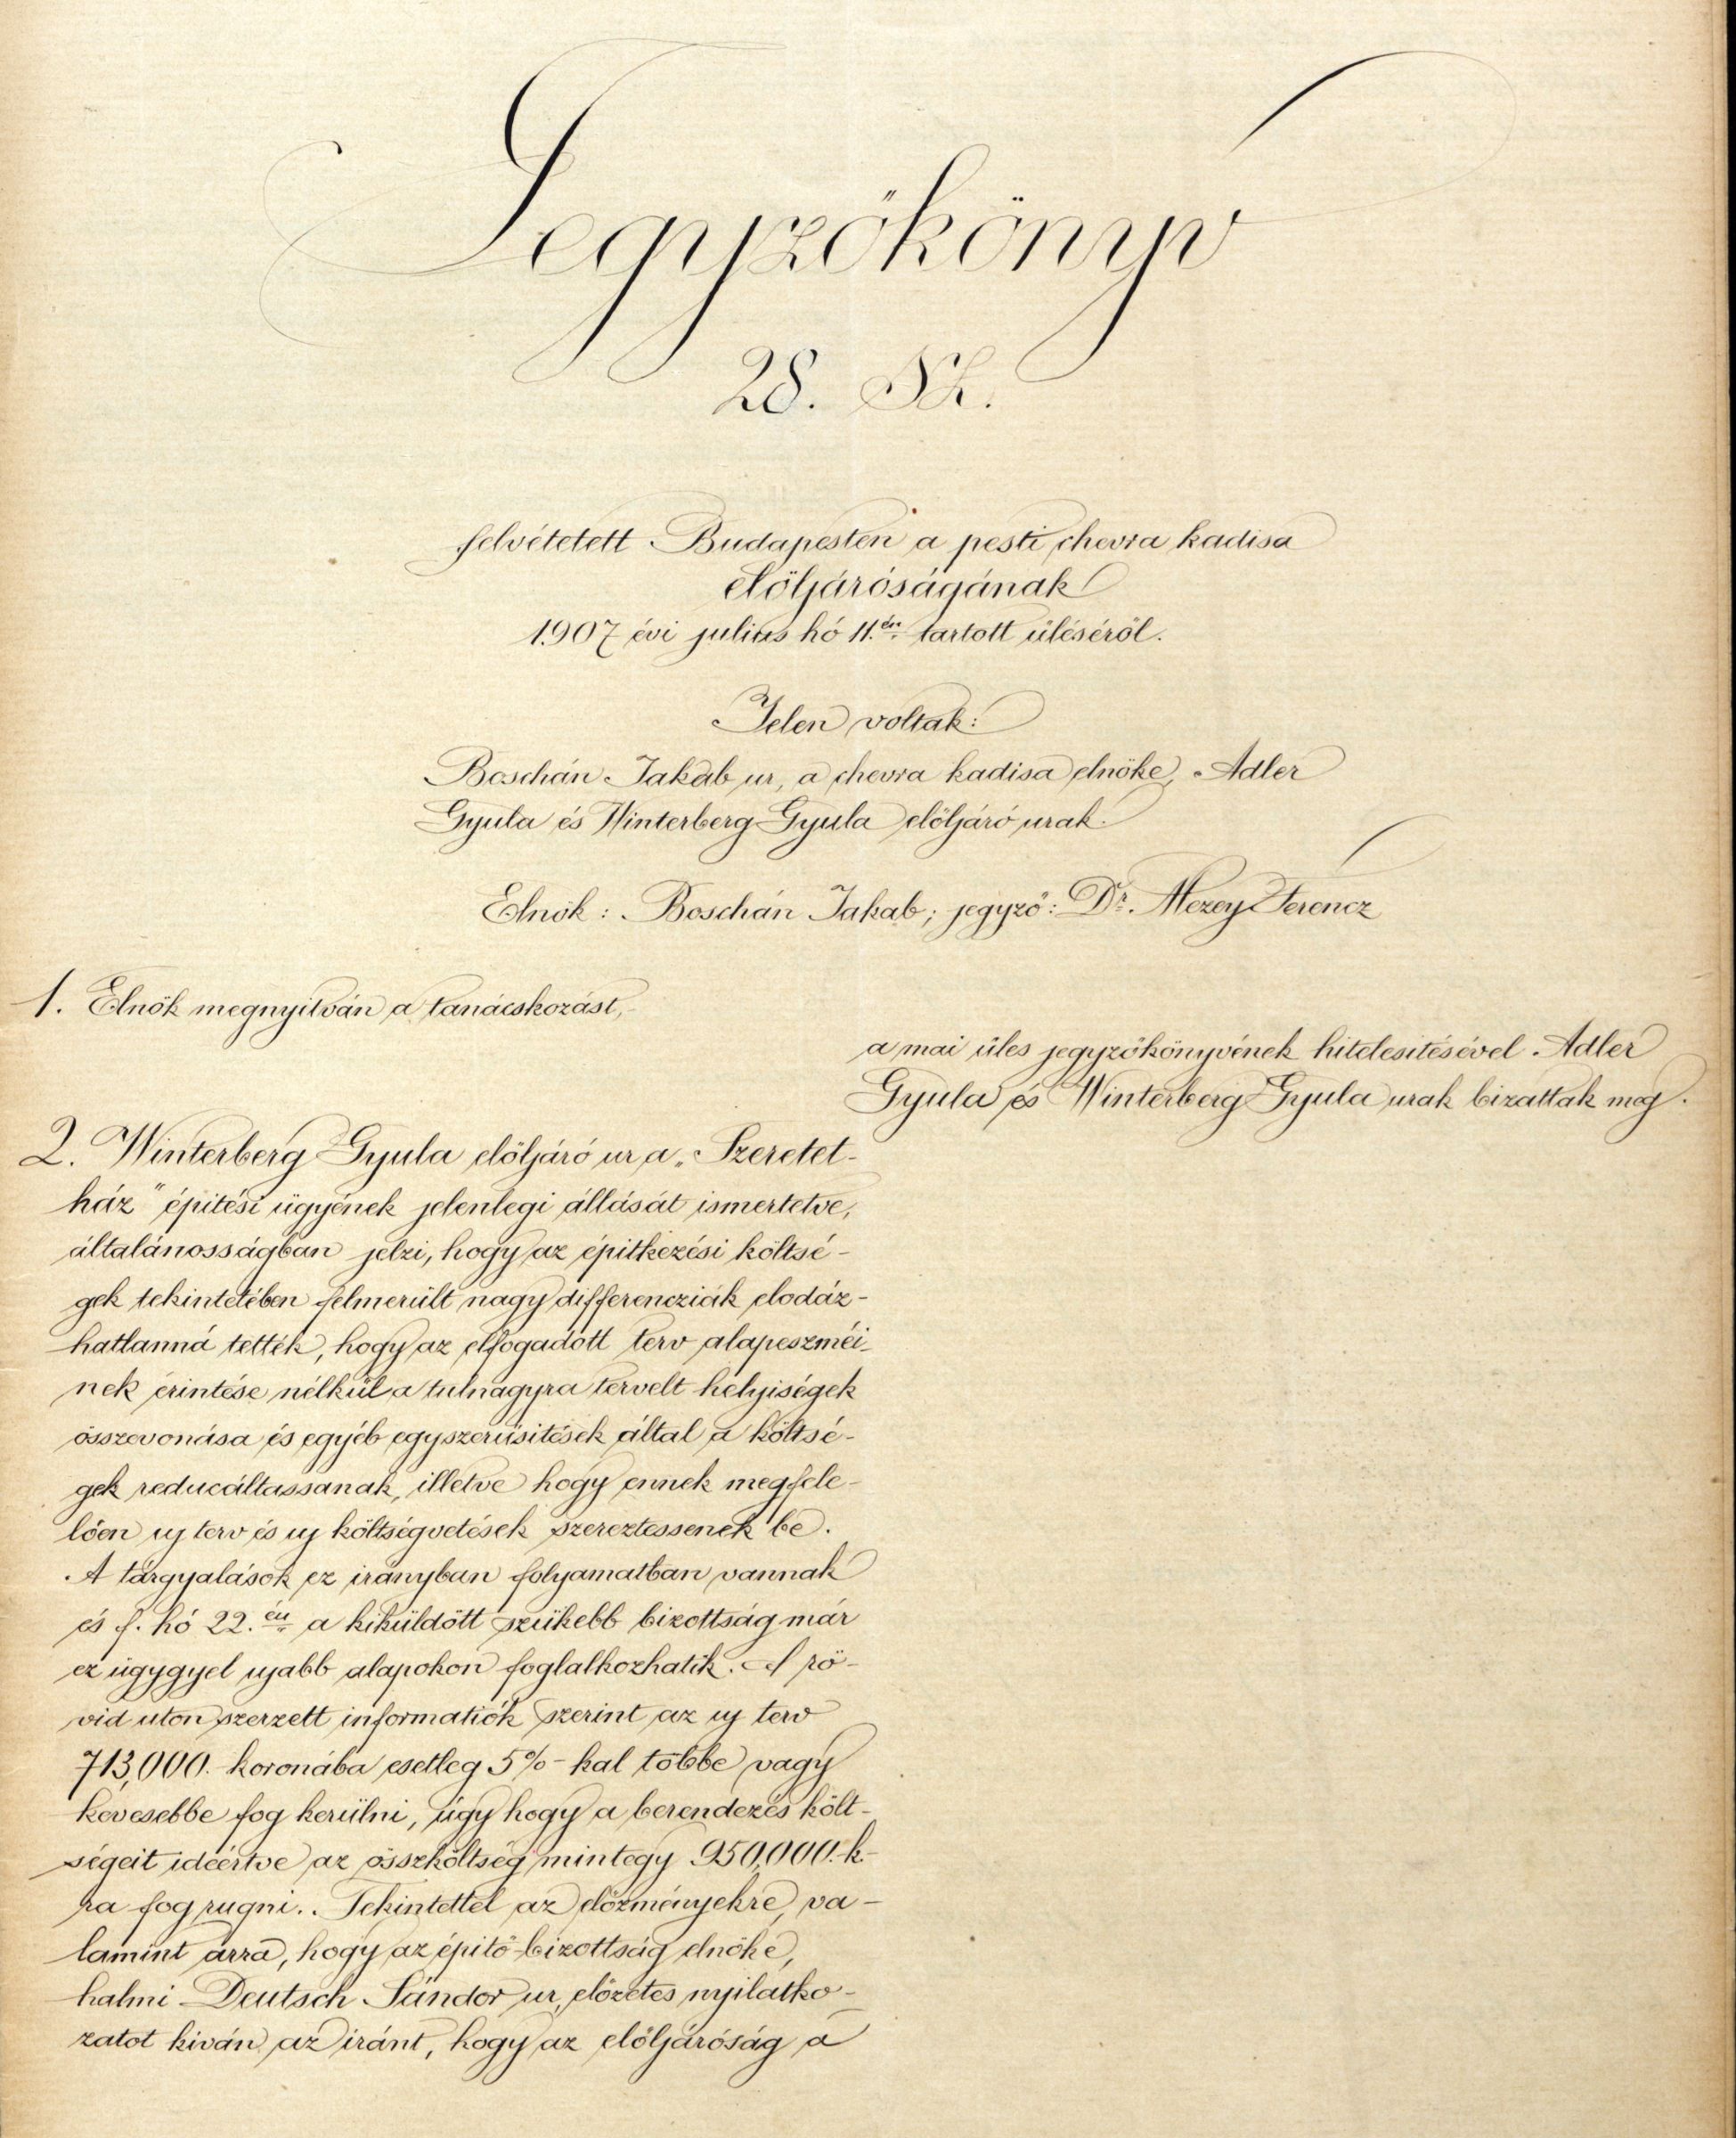 Jegyzőkönyv
28. Sz.
felvétetett Budapesten a pesti chevra kadisa
elöljáróságának
1907 évi julius hó 11.én tartott üléséről.
Jelen voltak:
Boschán Jakab ur, a chevra kadisa elnöke, Adler
Gyula és Winterberg Gyula elöljáró urak.
Elnök: Boschán Jakab; jegyző: Dr. Mezey Ferencz
1. Elnök megnyitván a tanácskozást,
a mai ülés jegyzőkönyvének hitelesitésével Adler
Gyula és Winterberg Gyula urak bizattak meg.
2. Winterberg Gyula elöljáró ur a „Szeretet-
ház" épitési ügyének jelenlegi állását ismertetve,
általánosságban jelzi, hogy az épitkezési költsé-
gek tekintetében felmerült nagy differencziák elodáz-
hatlanná tették, hogy az elfogadott terv alapeszméi-
nek érintése nélkül a tulnagyra tervelt helyiségek
összevonása és egyéb egyszerüsitések által a költsé-
gek reducáltassanak, illetve hogy ennek megfele-
lően uj terv és uj költségvetések szereztessenek be.
A tárgyalások ez irányban folyamatban vannak
és f. hó 22.én a kiküldött szükebb bizottság már
ez ügygyel ujabb alapokon foglalkozhatik. A rö-
vid uton szerzett informatiók szerint az uj terv
713,000. koronába esetleg 5%-kal többe vagy
kevesebbe fog kerülni, úgy hogy a berendezés költ-
ségeit ideértve az összköltség mintegy 950,000.k.-
ra fog rugni. Tekintettel az előzményekre, va-
lamint arra, hogy az épitő-bizottság elnöke,
halmi Deutsch Sándor ur, előzetes nyilatko-
zatot kiván az iránt, hogy az elöljáróság a